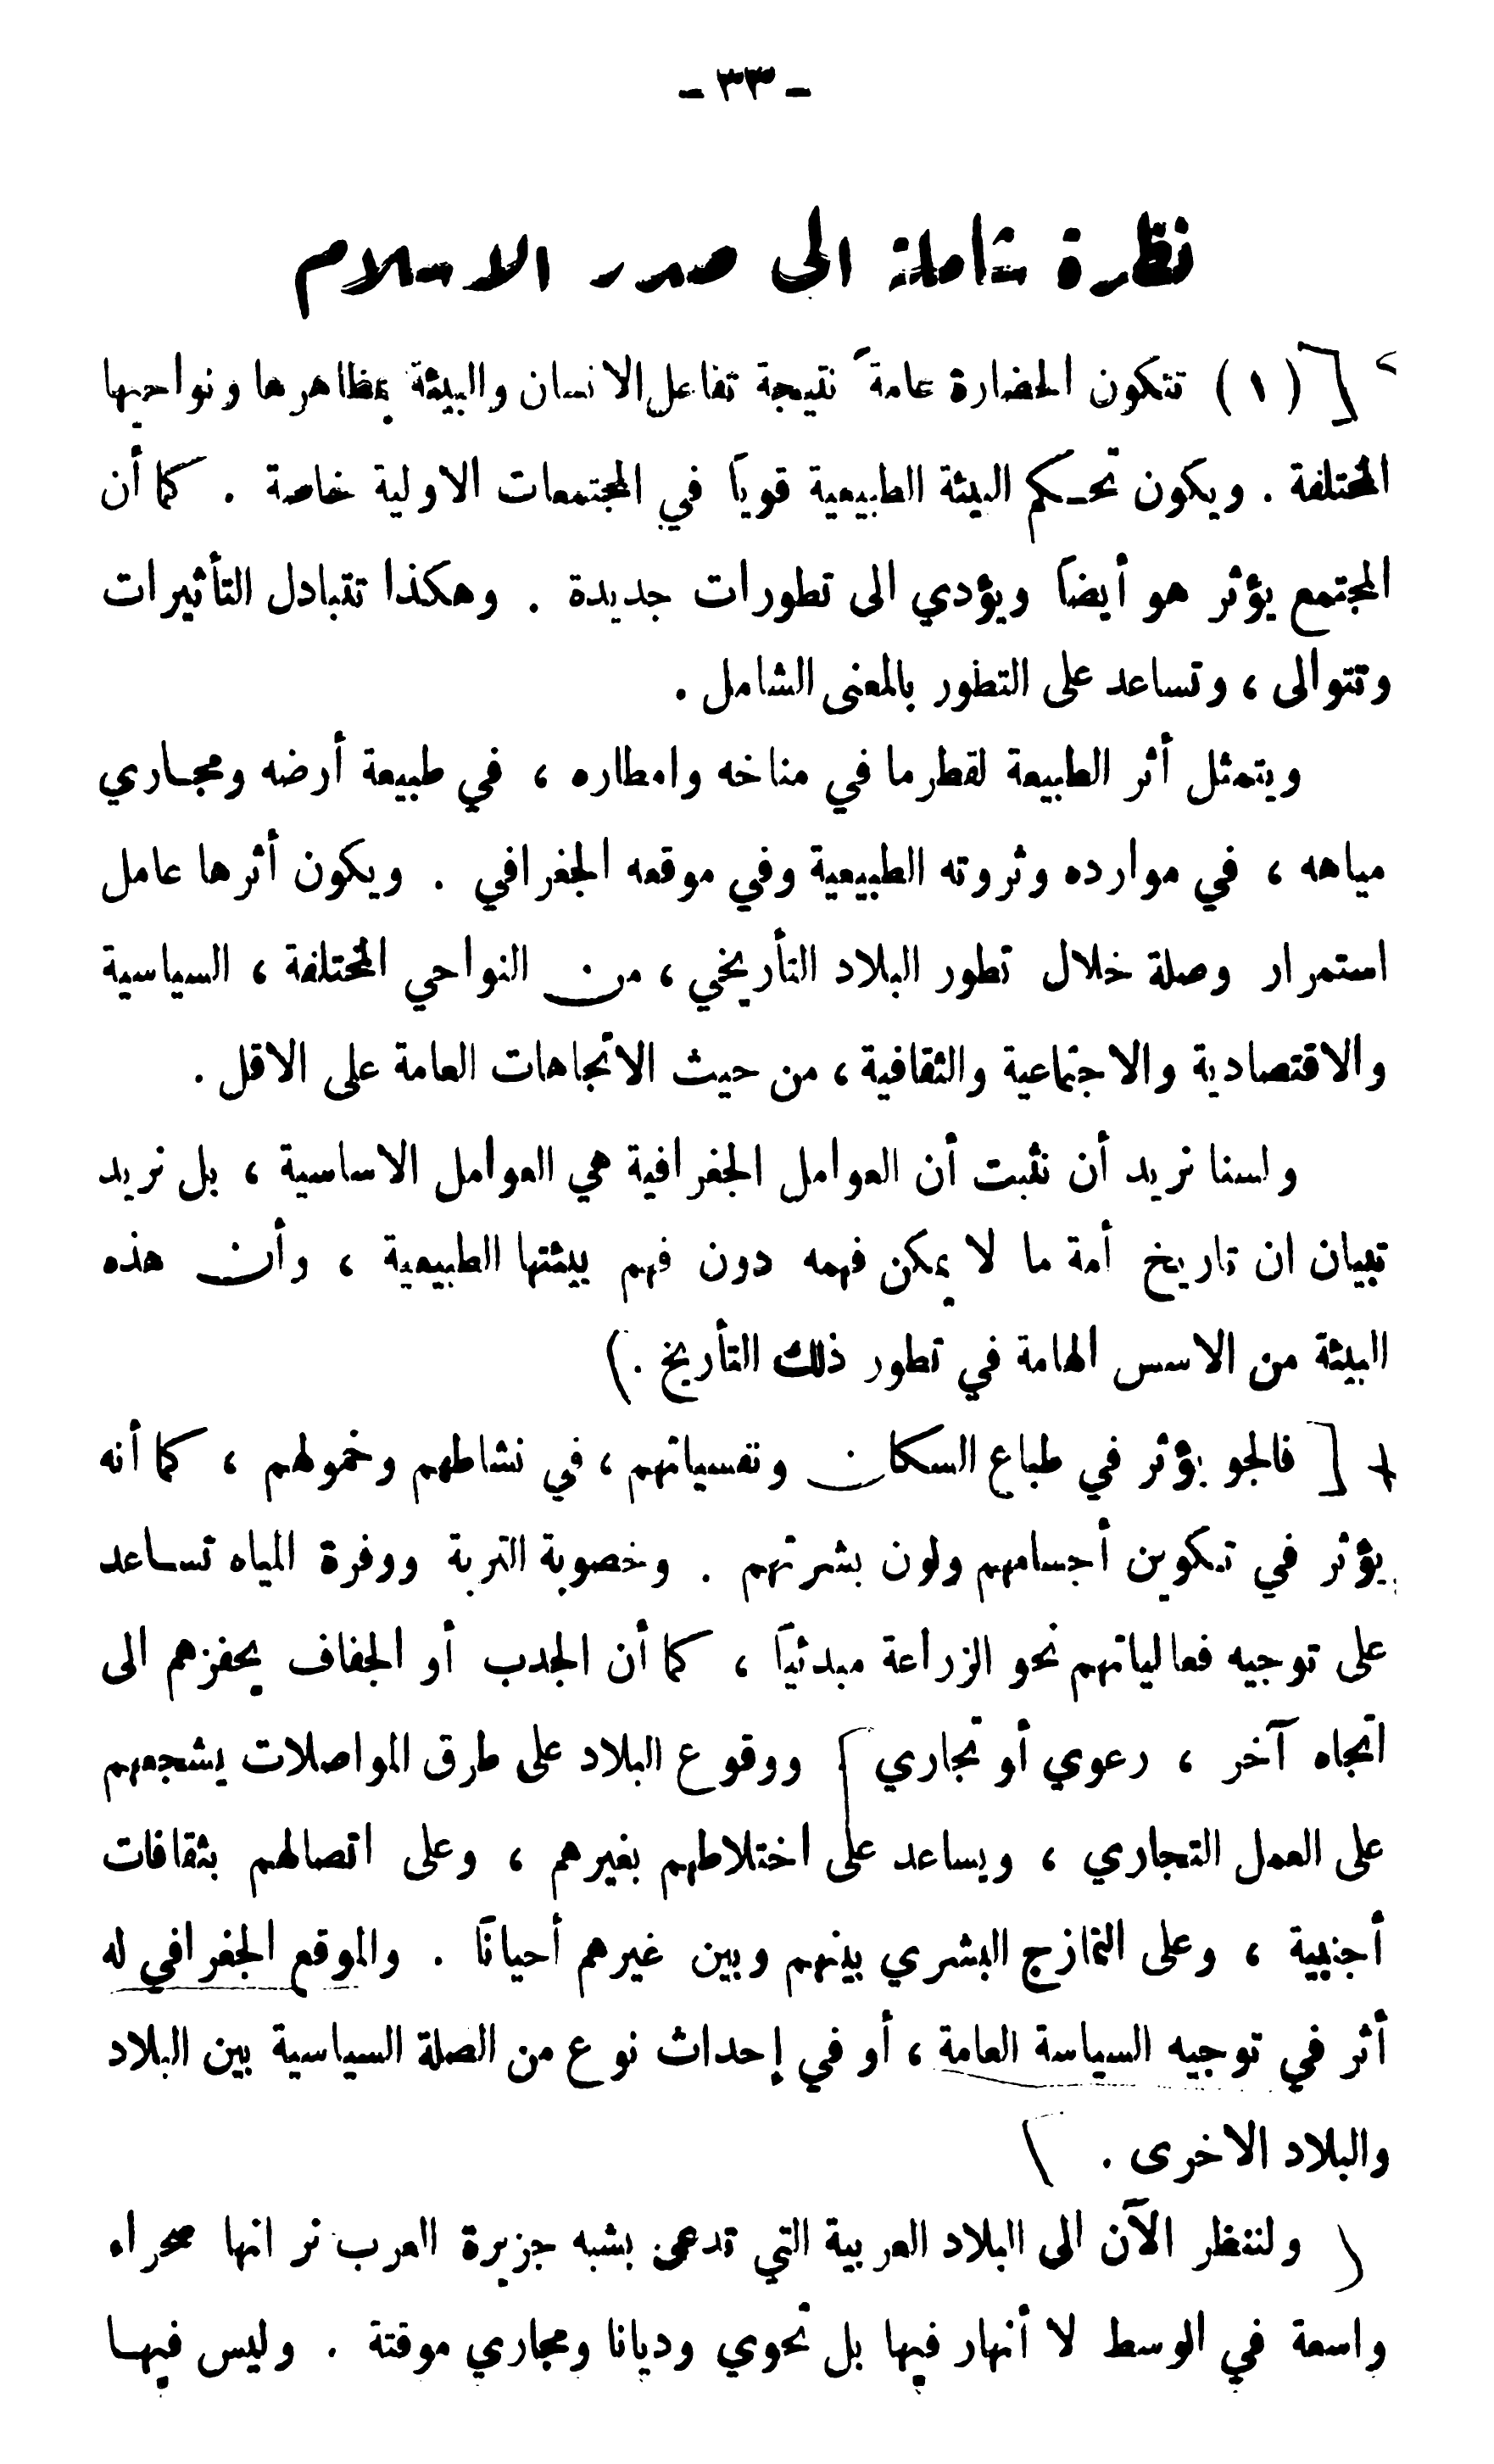 - ٣٣ -
نظرة شاملة الى صدر الاسلام
(١) تتكون الحضارة عامةً نتيجة تفاعل الانسان والبيئة بمظاهرها ونواحيها
المختلفة . ويكون تحكم البيئة الطبيعية قوياً في المجتمعات الاولية خاصة . كما أن
المجتمع يؤثر هو أيضاً ويؤدي الى تطورات جديدة . وهكذا تتبادل التأثيرات
وتتوالى ، وتساعد على التطور بالمعنى الشامل .
ويتمثل أثر الطبيعة لقطر ما في مناخه وامطاره ، في طبيعة أرضه ومجاري
مياهه ، في موارده وثروته الطبيعية وفي موقعه الجغرافي . ويكون أثرها عامل
استمرار وصلة خلال تطور البلاد التأريخي ، من النواحي المختلفة ، السياسية
والاقتصادية والاجتماعية والثقافية ، من حيث الاتجاهات العامة على الاقل .
ولسنا نريد أن نثبت أن العوامل الجغرافية هي العوامل الاساسية ، بل نريد
تبيان ان تاريخ أمة ما لا يمكن فهمه دون فهم بيئتها الطبيعية ، وأن هذه
البيئة من الاسس الهامة في تطور ذلك التأريخ .
فالجو يؤثر في طباع السكان ونفسياتهم ، في نشاطهم وخمولهم ، كما أنه
يؤثر في تكوين أجسامهم ولون بشرتهم . وخصوبة التربة ووفرة المياه تساعد
على توجيه فعالياتهم نحو الزراعة مبدئياً ، كما أن الجدب أو الجفاف يحفزهم الى
اتجاه آخر ، رعوي أو تجاري ووقوع البلاد على طرق المواصلات يشجعهم
على العمل التجاري ، ويساعد على اختلاطهم بغيرهم ، وعلى اتصالهم بثقافات
أجنبية ، وعلى التمازج البشري بينهم وبين غيرهم أحياناً . والموقع الجغرافي له
أثر في توجيه السياسة العامة ، أو في إحداث نوع من الصلة السياسية بين البلاد
والبلاد الاخرى .
ولننظر الآن الى البلاد العربية التي تدعى بشبه جزيرة العرب نر انها صحراء
واسعة في الوسط لا أنهار فيها بل تحوي وديانا ومجاري موقتة . وليس فيها